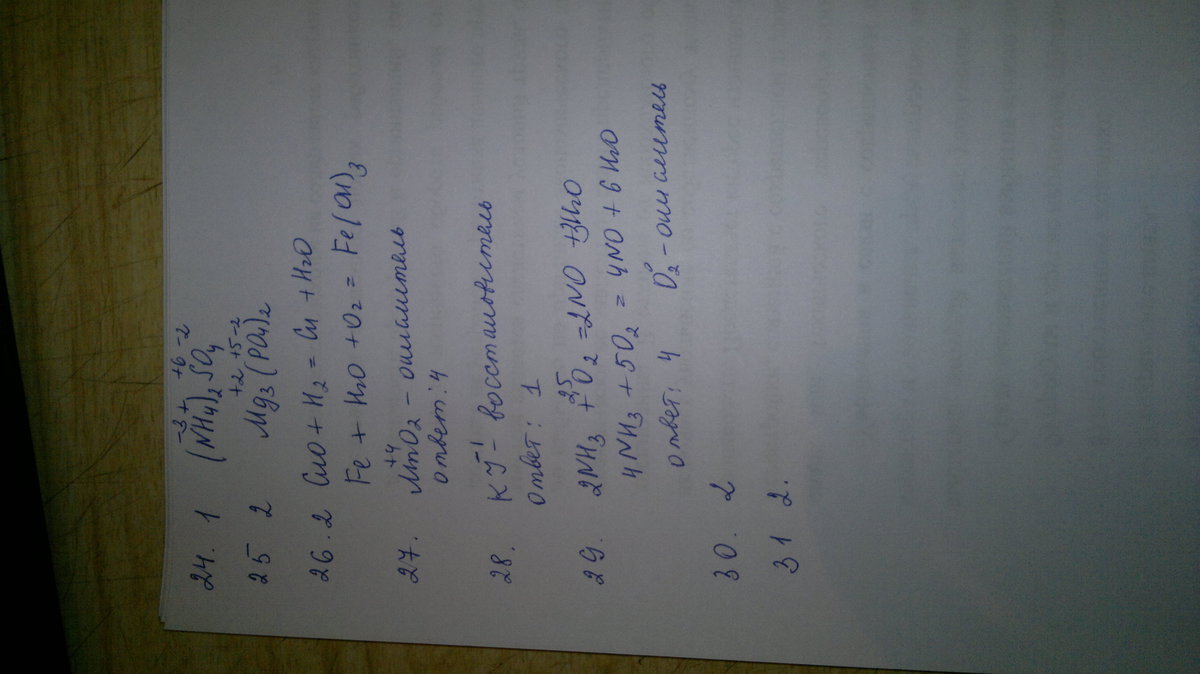 24. 1 (NH4)2SO4 -3 + +6 -2
25 2 Mg3(PO4)2 +2 +5 -2
26. 2 CuO + H2 = Cu + H2O
Fe + H2O + O2 = Fe(OH)3
27. MnO2 - окислитель +4
ответ: 4
28. KJ - восстановитель -1
ответ: 1
29. 2NH3 + 2,5 O2 = 2NO + 3H2O
4NH3 + 5O2 = 4NO + 6H2O
ответ: 4 O2 0 - окислитель
30. 2
31 2.